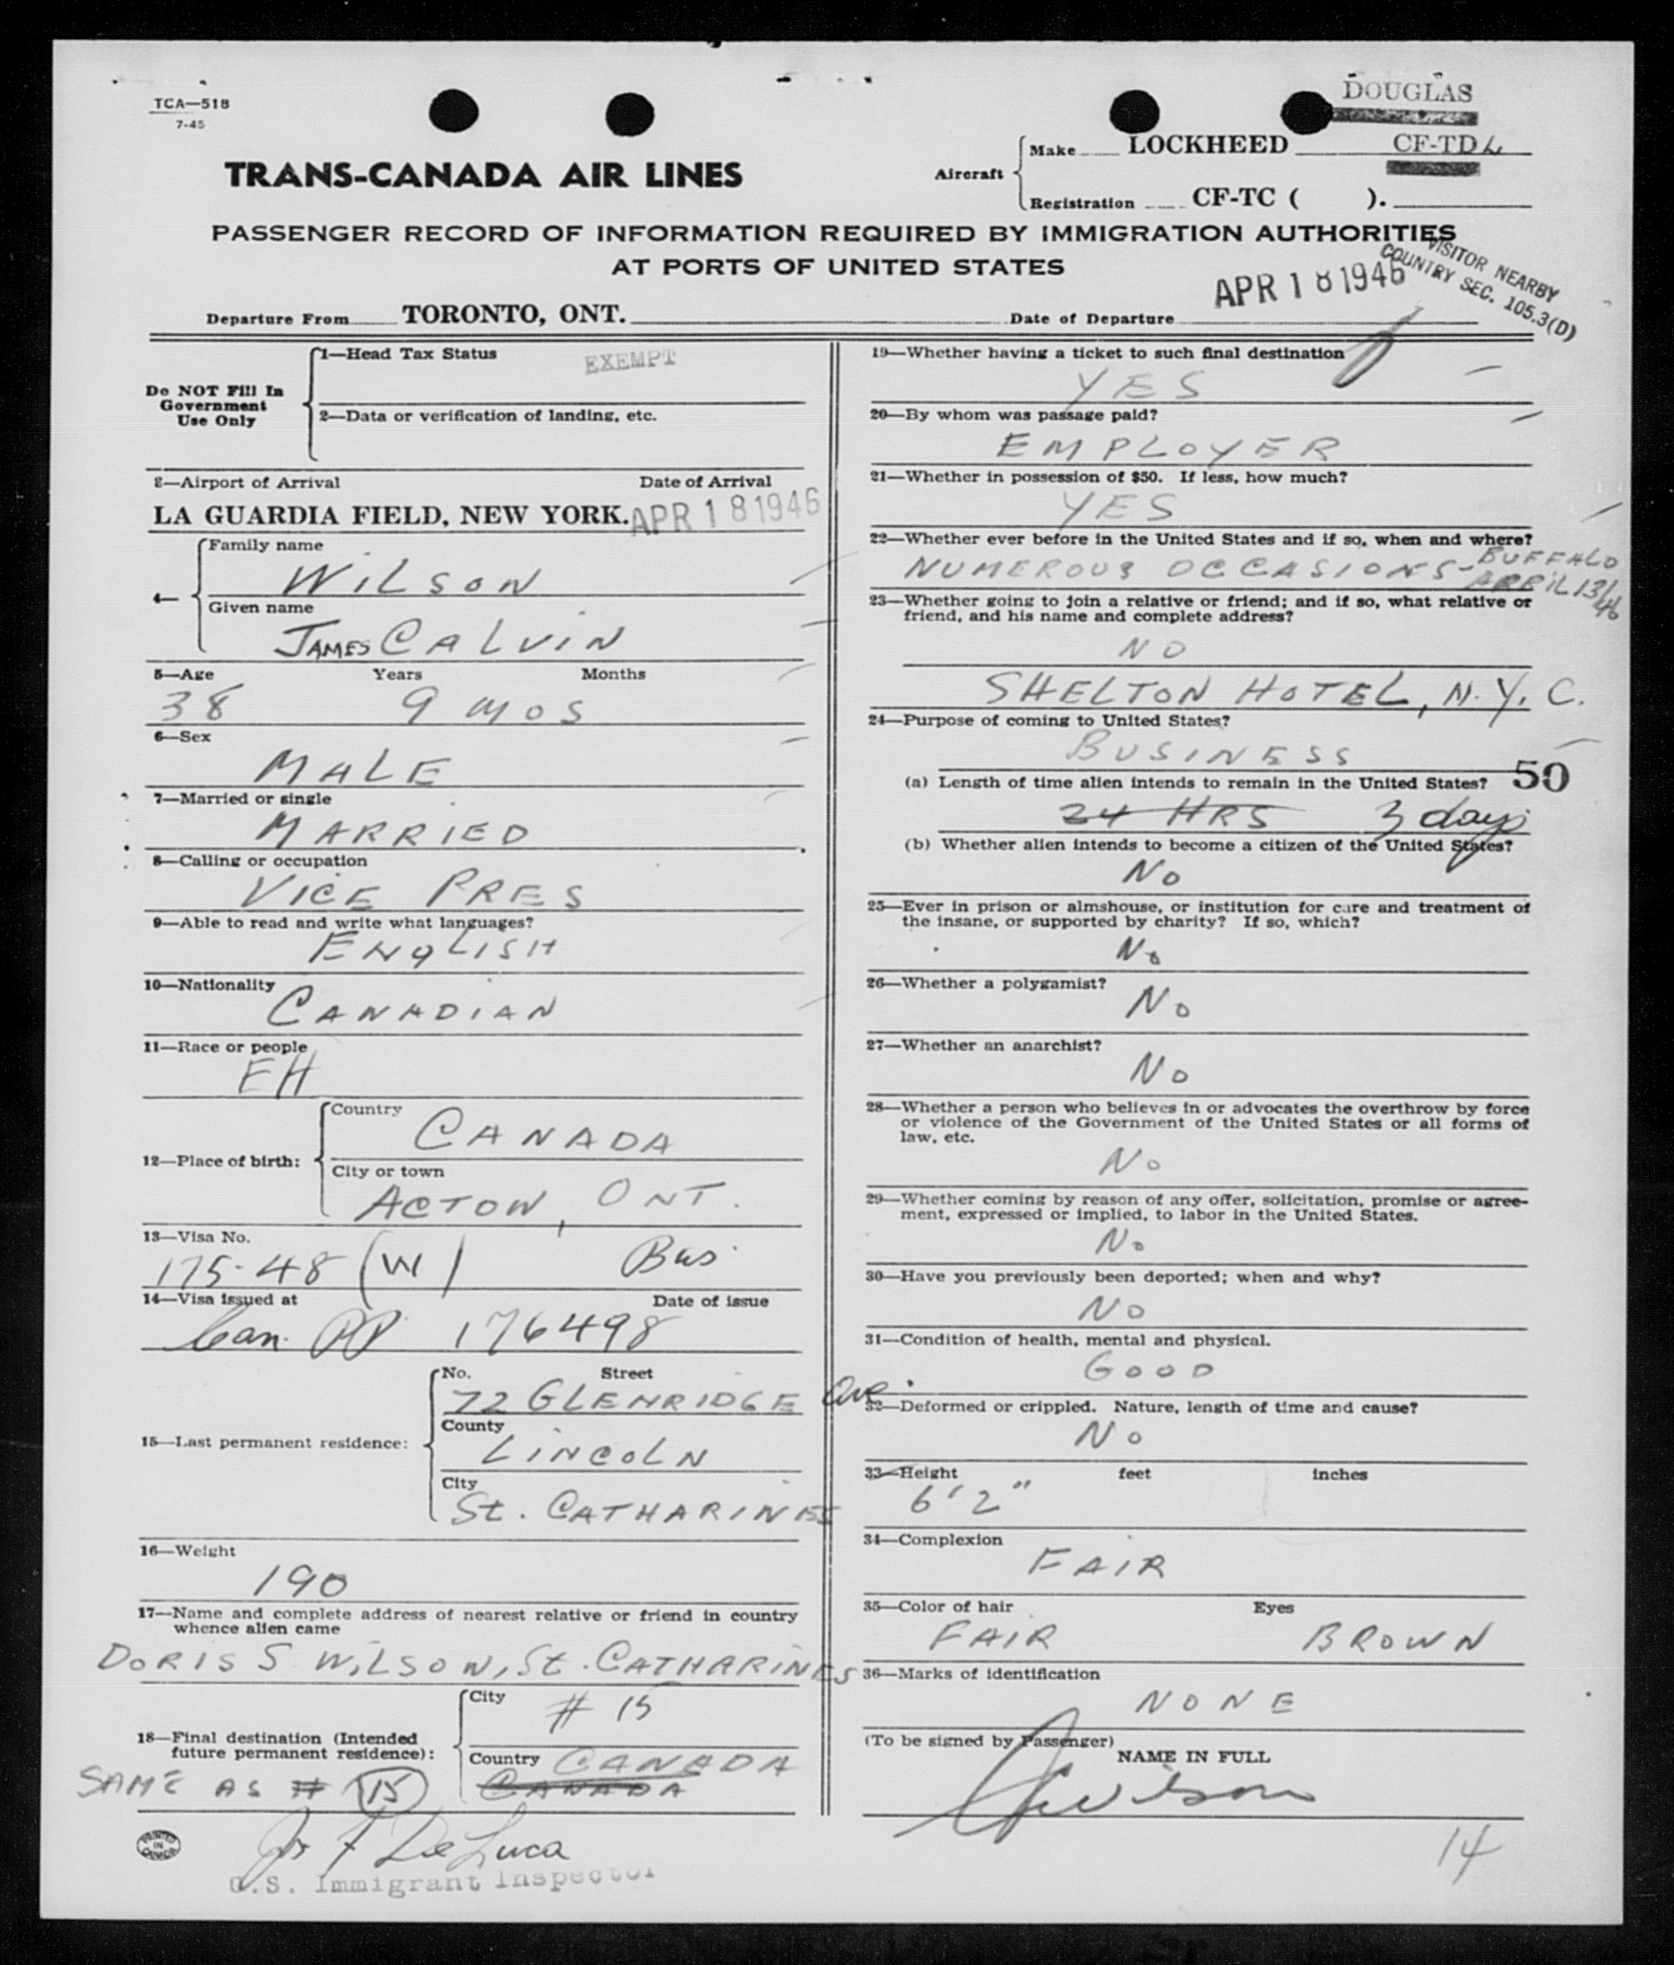 TCA—518
7-45
DOUGLAS
TRANS-CANADA AIR LINES
Aircraft
Make LOCKHEED CF-TDL
Registration CF-TC ( ).
PASSENGER RECORD OF INFORMATION REQUIRED BY IMMIGRATION AUTHORITIES
AT PORTS OF UNITED STATES
VISITOR NEARBY
COUNTRY SEC. 105.3(D)
Departure From TORONTO, ONT. Date of Departure APR 18 1946
Do NOT Fill In
Government
Use Only
1—Head Tax Status EXEMPT
2—Data or verification of landing, etc.
3—Airport of Arrival Date of Arrival
LA GUARDIA FIELD, NEW YORK. APR 18 1946
4—
Family name
WILSON
Given name
JAMES CALVIN
5—Age Years Months
38 9 MOS
6—Sex
MALE
7—Married or single
MARRIED
8—Calling or occupation
VICE PRES
9—Able to read and write what languages?
ENGLISH
10—Nationality
CANADIAN
11—Race or people
EH
12—Place of birth:
Country
CANADA
City or town
ACTON, ONT.
13—Visa No.
175-48 (W) Bus
14—Visa issued at Date of issue
Can. PP 176498
15—Last permanent residence:
No. Street
72 GLENRIDGE Ave.
County
LINCOLN
City
St. CATHARINES
16—Weight
190
17—Name and complete address of nearest relative or friend in country
whence alien came
DORIS S WILSON, St. CATHARINES
18—Final destination (Intended
future permanent residence):
SAME AS # 15
City
# 15
Country CANADA
CANADA
De Luca
U.S. Immigrant Inspector
PRINTED
IN
CANADA
19—Whether having a ticket to such final destination
YES
20—By whom was passage paid?
EMPLOYER
21—Whether in possession of $50. If less, how much?
YES
22—Whether ever before in the United States and if so, when and where?
NUMEROUS OCCASIONS - BUFFALO
APRIL 13/46
23—Whether going to join a relative or friend; and if so, what relative or
friend, and his name and complete address?
NO
SHELTON HOTEL, N.Y.C.
24—Purpose of coming to United States?
BUSINESS
(a) Length of time alien intends to remain in the United States? 50
24 HRS 3 days
(b) Whether alien intends to become a citizen of the United States?
No
25—Ever in prison or almshouse, or institution for care and treatment of
the insane, or supported by charity? If so, which?
No
26—Whether a polygamist?
No
27—Whether an anarchist?
No
28—Whether a person who believes in or advocates the overthrow by force
or violence of the Government of the United States or all forms of
law, etc.
No
29—Whether coming by reason of any offer, solicitation, promise or agree-
ment, expressed or implied, to labor in the United States.
No
30—Have you previously been deported; when and why?
NO
31—Condition of health, mental and physical.
GOOD
32—Deformed or crippled. Nature, length of time and cause?
No
33—Height feet inches
6'2"
34—Complexion
FAIR
35—Color of hair Eyes
FAIR BROWN
36—Marks of identification
NONE
(To be signed by Passenger)
NAME IN FULL
JCWilson
14